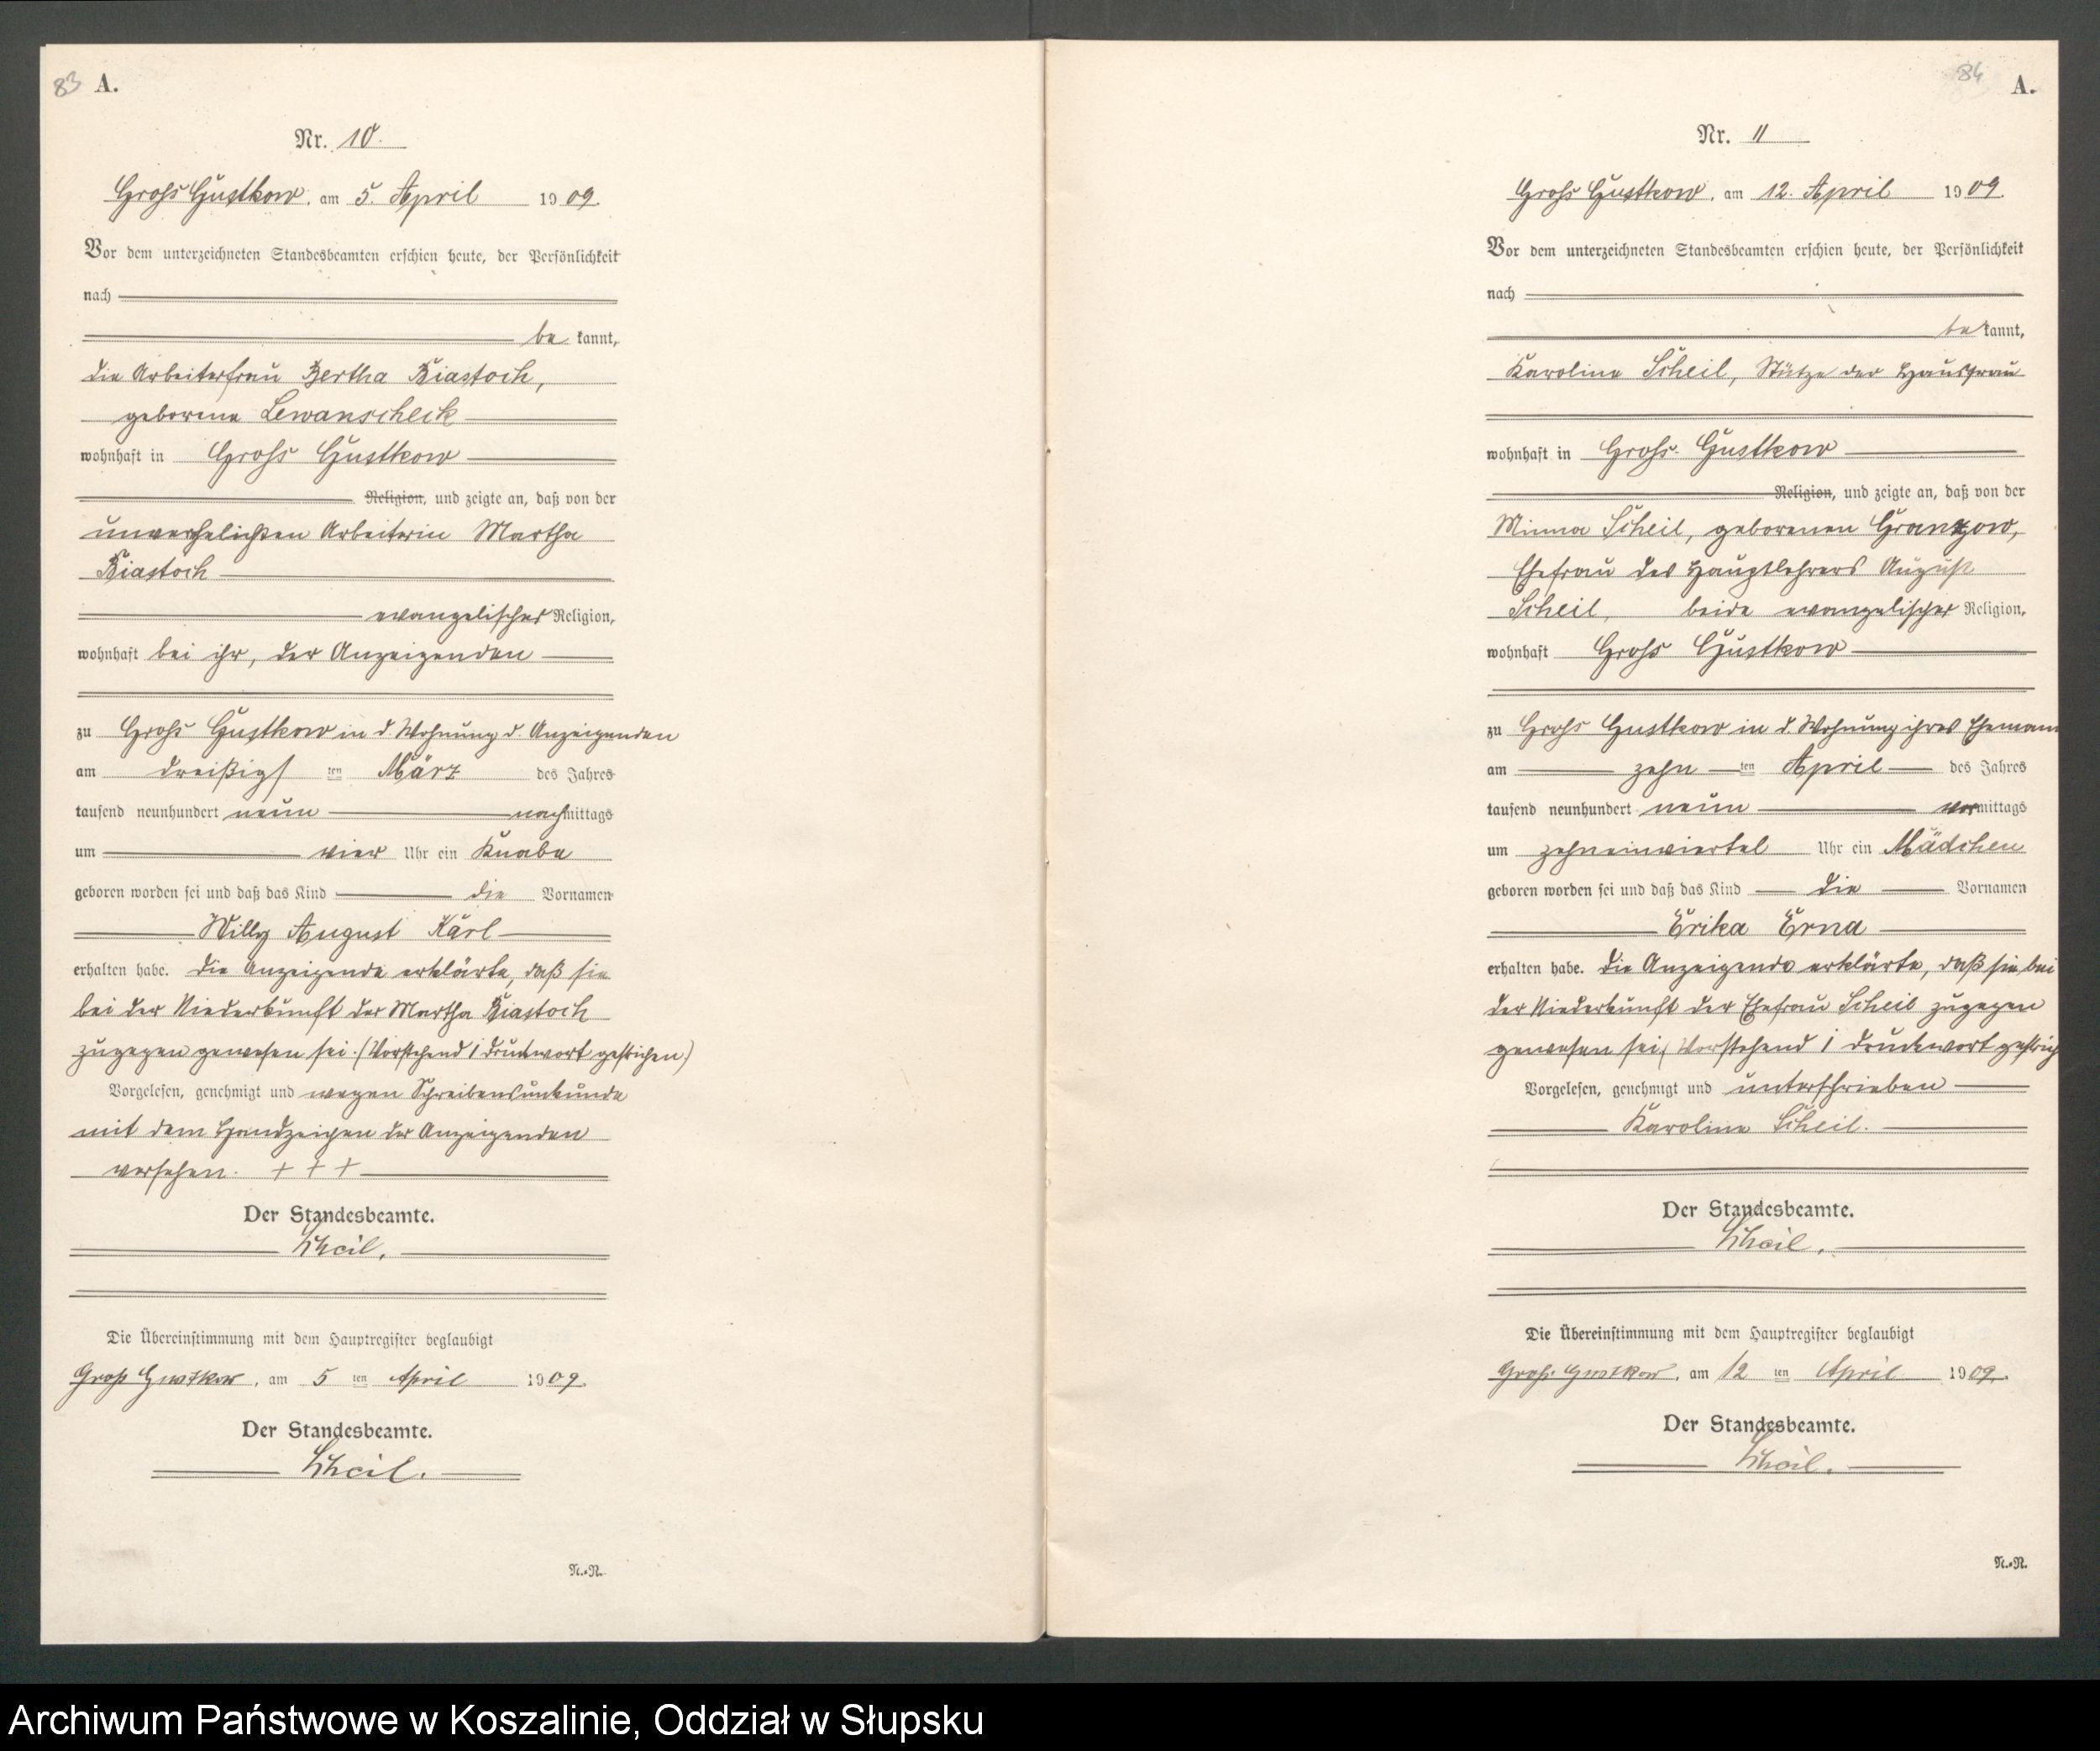 83 A.
Nr. 10.
Groß Gustkow, am 5. April 1909.
Vor dem unterzeichneten Standesbeamten erschien heute, der Persönlichkeit
nach
be kannt,
die Arbeiterfrau Bertha Kiastoch,
geborene Lewanscheck
wohnhaft in Groß Gustkow
Religion, und zeigte an, daß von der
unverehelichten Arbeiterin Martha
Kiastoch
evangelischer Religion,
wohnhaft bei ihr, der Anzeigenden
zu Groß Gustkow in d. Wohnung d. Anzeigenden
am dreißigs ten März des Jahres
tausend neunhundert neun nachmittags
um vier Uhr ein Knabe
geboren worden sei und daß das Kind die Vornamen
Willy August Karl
erhalten habe. Die Anzeigende erklärte, daß sie
bei der Niederkunft der Martha Kiastoch
zugegen gewesen sei. (Vorstehend 1 Druckwort gestrichen)
Vorgelesen, genehmigt und wegen Schreibensunkunde
mit dem Handzeichen der Anzeigenden
versehen. + + +
Der Standesbeamte.
Scheil.
Die Übereinstimmung mit dem Hauptregister beglaubigt
Groß Gustkow, am 5 ten April 1909.
Der Standesbeamte.
Scheil.
N.-R.
84 A.
Nr. 11
Groß Gustkow, am 12. April 1909.
Vor dem unterzeichneten Standesbeamten erschien heute, der Persönlichkeit
nach
be kannt,
Karoline Scheil, Stütze der Hausfrau
wohnhaft in Groß Gustkow
Religion, und zeigte an, daß von der
Minna Scheil, geborenen Granzow,
Ehefrau des Hauptlehrers August
Scheil, beide evangelischer Religion,
wohnhaft Groß Gustkow
zu Groß Gustkow in d. Wohnung ihres Ehemann
am zehn ten April des Jahres
tausend neunhundert neun vormittags
um zehneinviertel Uhr ein Mädchen
geboren worden sei und daß das Kind die Vornamen
Erika Erna
erhalten habe. Die Anzeigende erklärte, daß sie bei
der Niederkunft der Ehefrau Scheil zugegen
gewesen sei. (Vorstehend 1 Druckwort gestrich
Vorgelesen, genehmigt und unterschrieben
Karoline Scheil.
Der Standesbeamte.
Scheil.
Die Übereinstimmung mit dem Hauptregister beglaubigt
Groß Gustkow, am 12 ten April 1909.
Der Standesbeamte.
Scheil.
N.-R.
Archiwum Państwowe w Koszalinie, Oddział w Słupsku